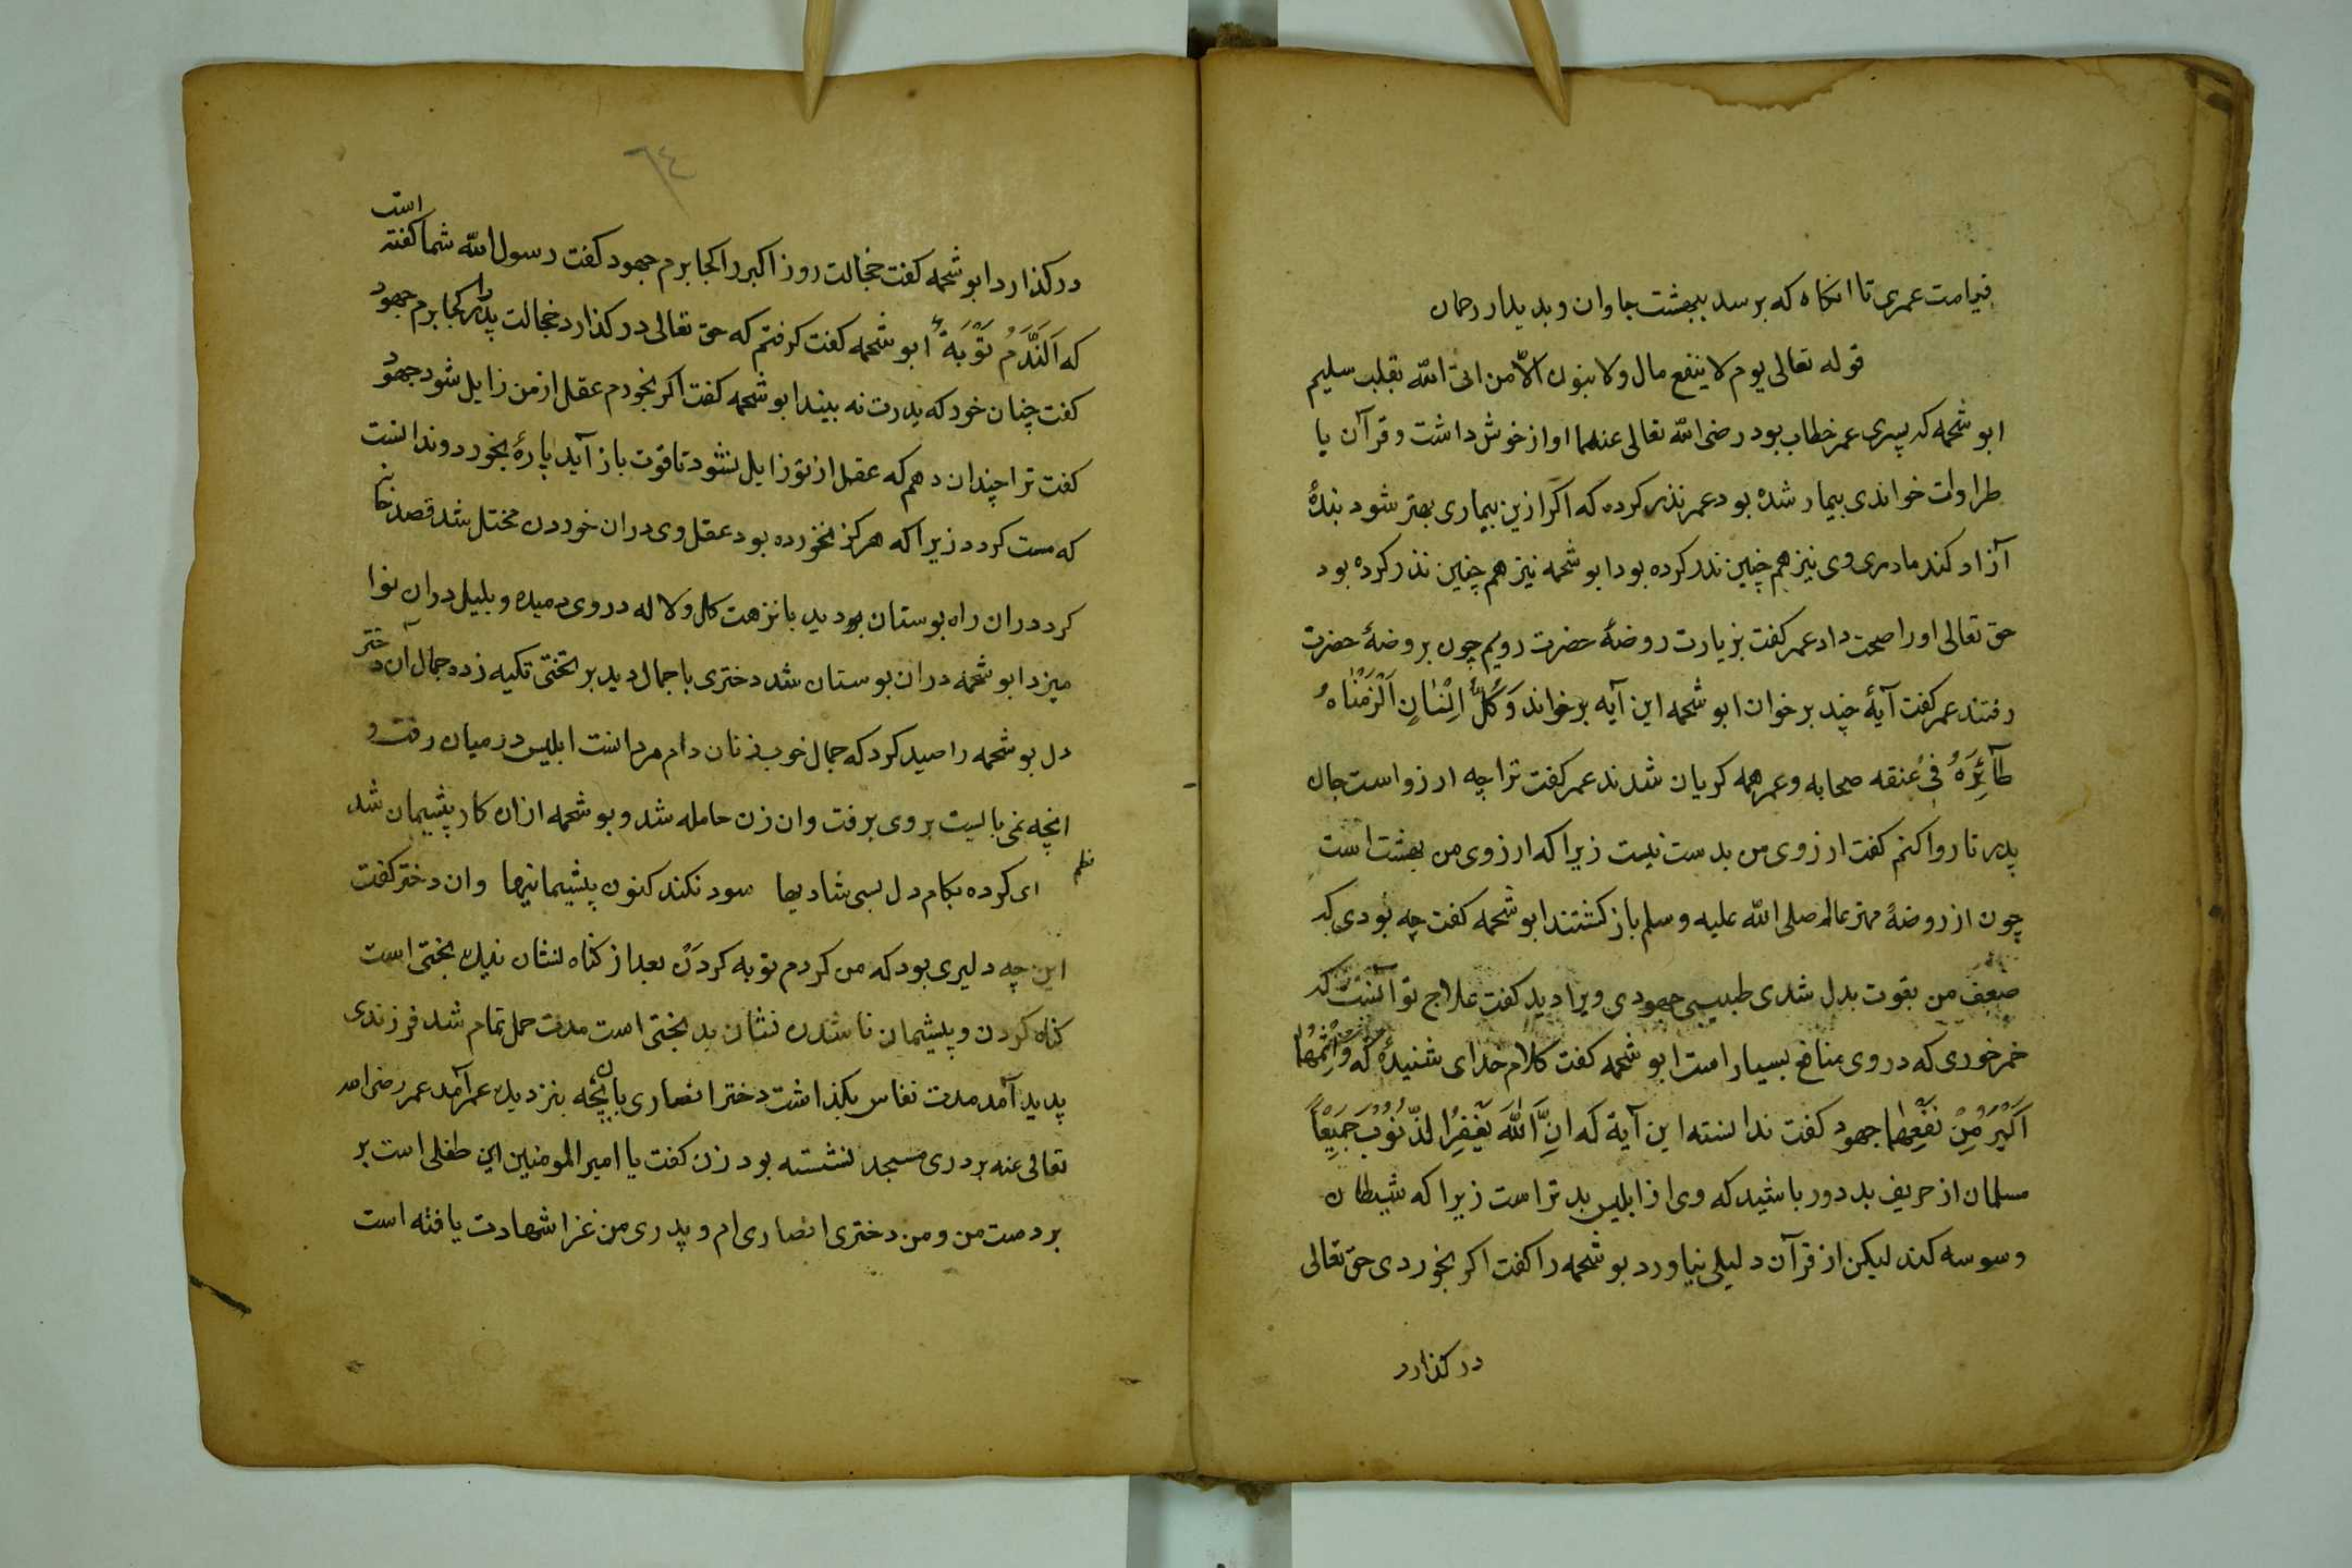 قیامت عمری تا انکاه که برسد ببهشت جاوان و بدیدار رحمان
قوله تعالی یوم لا ینفع مال ولا بنون الّا من اتی الله بقلب سلیم
ابو شحمه که پسری عمر خطاب بود رضی الله تعالی عنهما اواز خوش داشت و قرآن با
طراوت خواندی بیمار شده بود عمر نذر کرده که اکر ازین بیماری بهتر شود بندهٔ
آزاد کند مادری وی نیز هم چنین نذر کرده بود ابو شحمه نیز هم چنین نذر کرده بود
حق تعالی اورا صحت داد عمر کفت بزیارت روضهٔ حضرت رویم چون بروضهٔ حضرت
رفتند عمر کفت آیهٔ چند برخوان ابو شحمه این آیه برخواند وَكُلَّ اِنْسَانٍ اَلْزَمْنَاهُ
طَآئِرَهُ فِی عُنقه صحابه و عمر همه کریان شدند عمر کفت ترا چه ارزواست جان
پدر تا روا کنم کفت ارزوی من بدست نیست زیرا که ارزوی من بهشت است
چون از روضهٔ مهتر عالم صلی الله علیه وسلم باز کشتند ابو شحمه کفت چه بودی که
ضعف من بقوت بدل شدی طبیبی جهودی ویرا دید کفت علاج تو آنست که
خمر خوری که در وی منافع بسیار است ابو شحمه کفت کلام خدای شنیدهٔ که وَاِثْمُهُمَا
اَكْبَرُ مِنْ نَفْعِهِمَا جهود کفت ندانسته این آیة که اِنَّ اللّٰهَ یَغْفِرُ الذُّنُوْبَ جَمِیْعًا
مسلمان از حریف بد دور باشید که وی از ابلیس بدتر است زیرا که شیطان
وسوسه کند لیکن از قرآن دلیلی نیاورد بو شحمه را کفت اکر بخوردی حق تعالی
درکذارد
٦٤
درکذارد ابو شحمه کفت خجالت روز اکبر را کجا برم جهود کفت رسول الله شما کفته است
که اَلنَّدَمُ تَوْبَةٌ ابو شحمه کفت کرفتم که حق تعالی درکذارد خجالت پدر را کجا برم جهود
کفت چنان خور که پدرت نه بیند ابو شحمه کفت اکر بخورم عقل از من زایل شود جهود
کفت ترا چندان دهم که عقل از تو زایل نشود تا قوت باز آید پارهٔ بخورد و ندانست
که مست کردد زیرا که هرکز نخورده بود عقل وی دران خوردن مختل شد قصد خانه
کرد دران راه بوستان بود دید با نزهت کل و لاله در وی دمیده و بلبل دران نوا
میزد ابو شحمه دران بوستان شد دختری با جمال دید بر تختی تکیه زده جمال آن دختر
دل بو شحمه را صید کرد که جمال خوب زنان دام مردانست ابلیس در میان رفت و
انچه نمی بایست بر وی برفت وان زن حامله شد و بو شحمه ازان کار پشیمان شد
نظم ای کرده بکام دل بسی شادیها سود نکند کنون پشیمانیها وان دختر کفت
این چه دلیری بود که من کردم توبه کردن بعد از کناه نشان نیک بختی است
کناه کردن و پشیمان ناشدن نشان بد بختی است مدت حمل تمام شد فرزندی
پدید آمد مدت نفاس بکذاشت دختر انصاری با آن بچه بنزدیک عمر آمد عمر رضی الله
تعالی عنه بر دری مسجد نشسته بود زن کفت یا امیر المومنین این طفلی است بر
بر دست من و من دختری انصاری ام و پدری من غزا شهادت یافته است